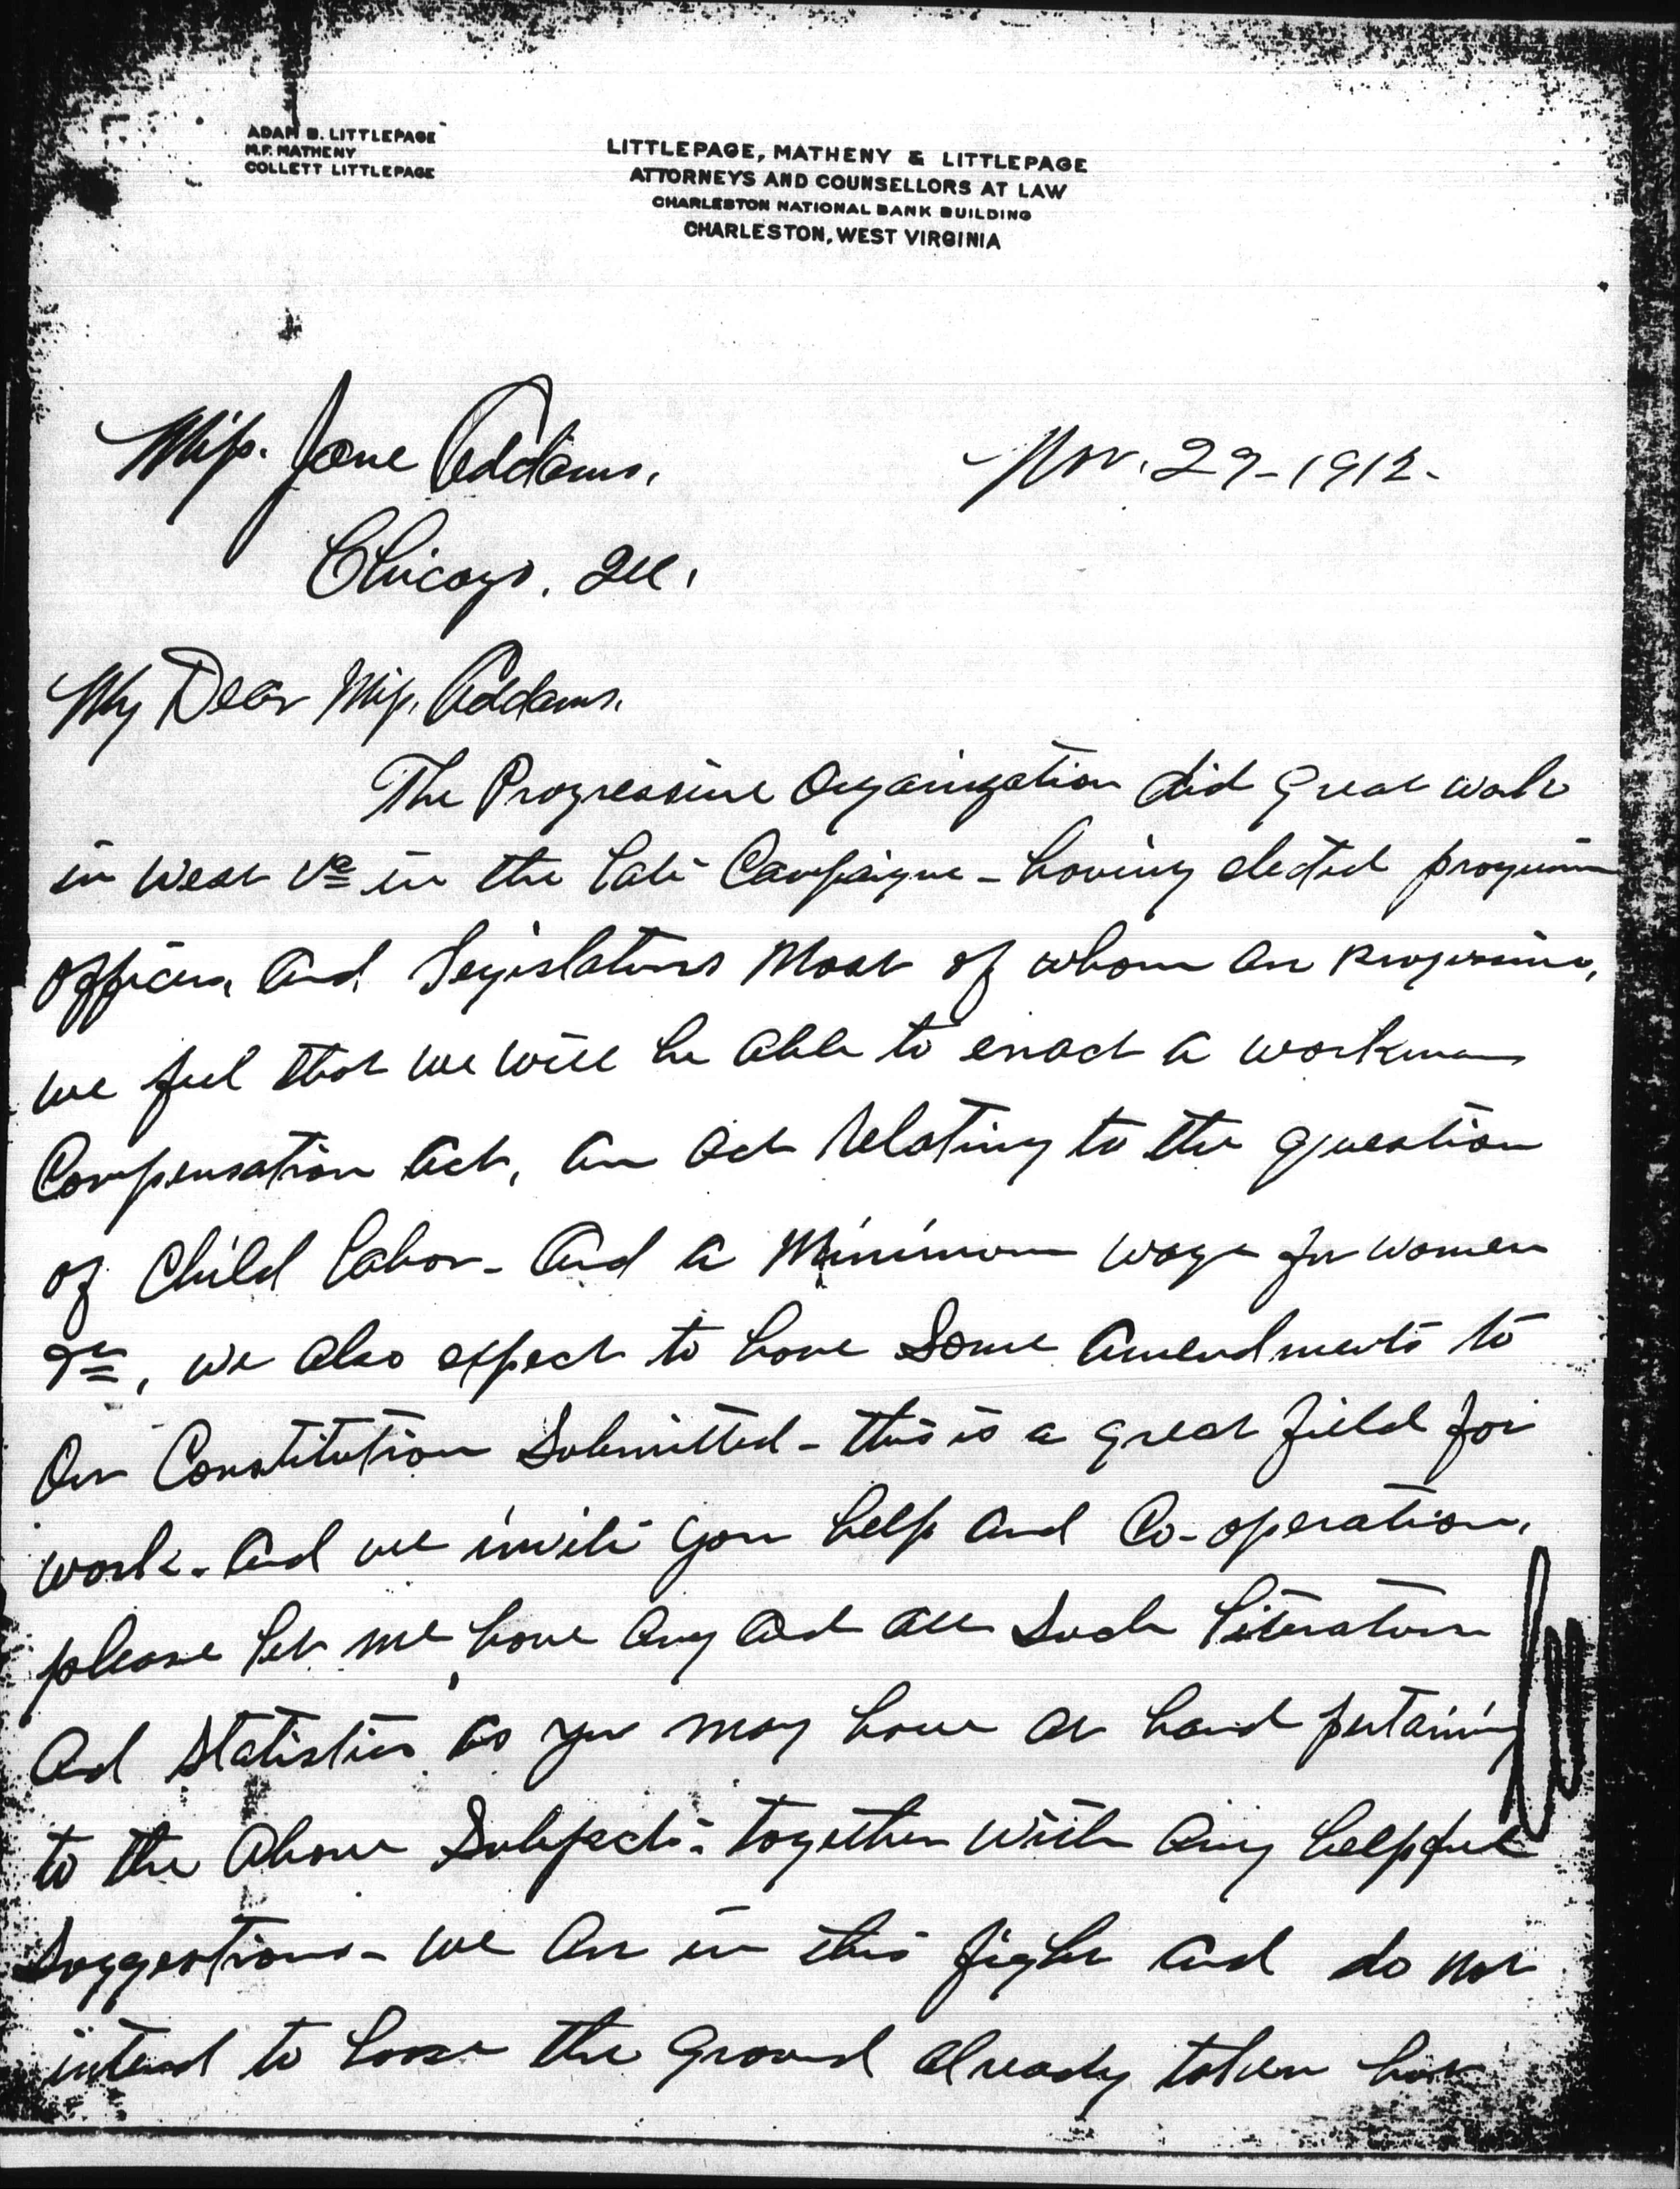 ADAM B. LITTLEPAGE
M.F. MATHENY
COLLETT LITTLEPAGE
LITTLEPAGE, MATHENY & LITTLEPAGE
ATTORNEYS AND COUNSELLORS AT LAW
CHARLESTON NATIONAL BANK BUILDING
CHARLESTON, WEST VIRGINIA
Miss. Jane Addams,
Nov. 29-1912-
Chicago, Ill.
My Dear Miss. Addams.
The Progressive Organization did great work
in West Va in the late Campaign - having elected progressive
officers, and Legislators Most of whom are progressive,
we feel that we will be able to enact a workmans
Compensation Act, an act relating to the question
of Child labor - and a Minimum wage for women
&c, we also expect to have Some Amendments to
Our Constitution Submitted - this is a great field for
work - and we invite your help and Co-operation,
please let me have any and all Such literature
and Statistics as you may have at hand pertaining
to the above Subjects - together with any helpful
Suggestions - we are in this fight and do not
intend to loose the ground already taken but